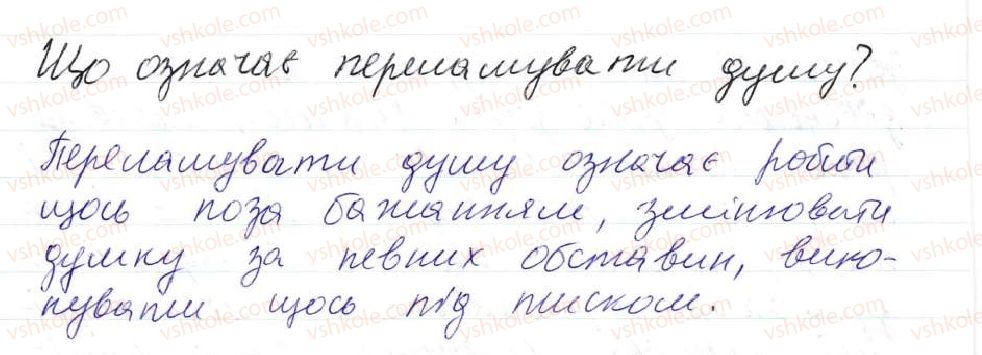 Що означає переламувати душу?
Переламувати душу означає робити
щось поза бажанням, змінювати
думку за певних обставин, вико-
нувати щось під тиском.